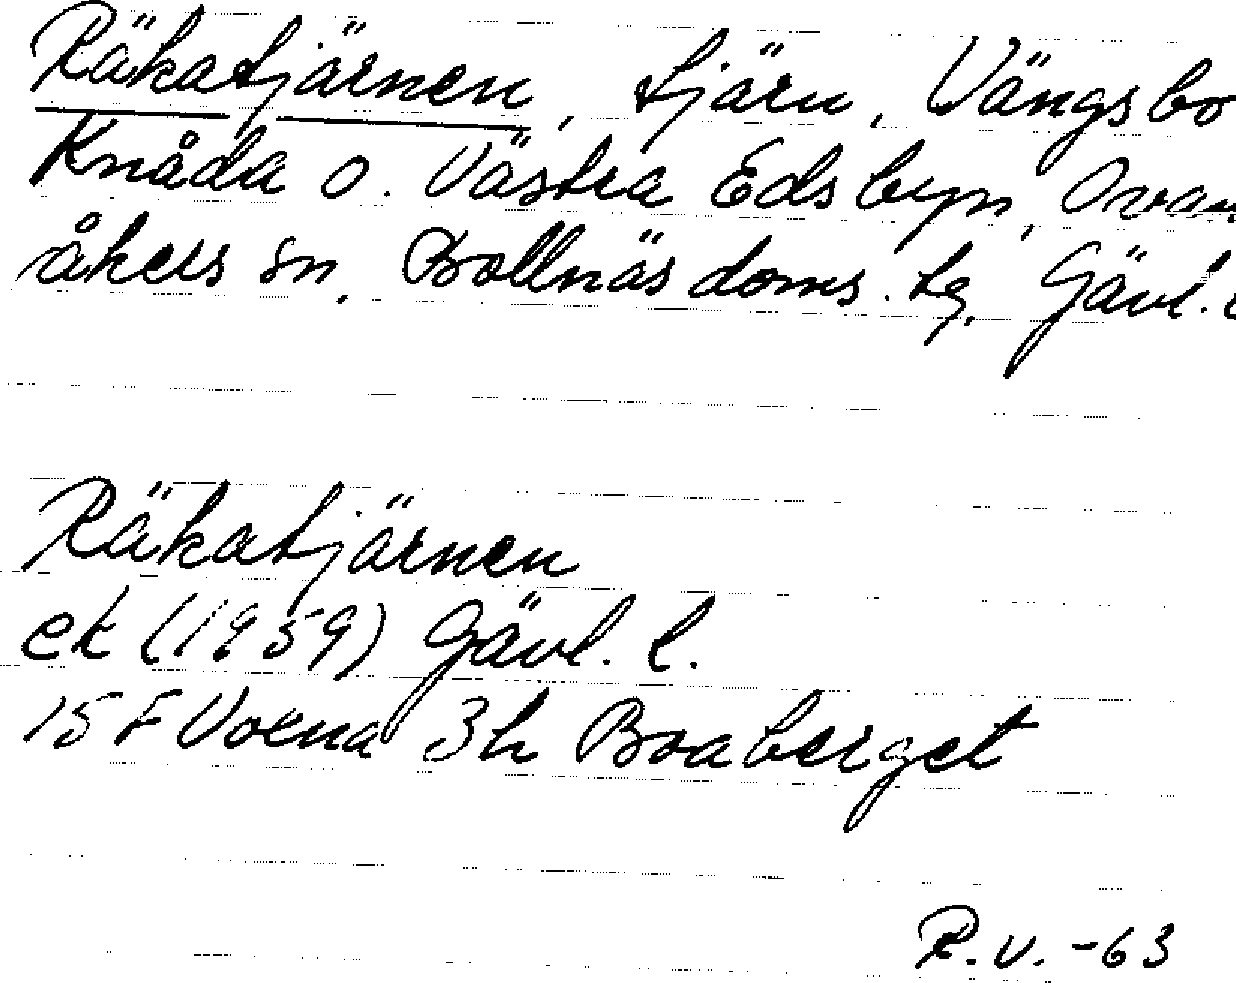 Räkatjärnen, tjärn, Vängsbo
Knåda o. Västra Edsbyn, Ovan-
åkers sn, Bollnäs doms. tg, Gävl. l
Räkatjärnen
ek (1959) Gävl. l.
15 F Voxna 3h Boaberget
R.V. -63